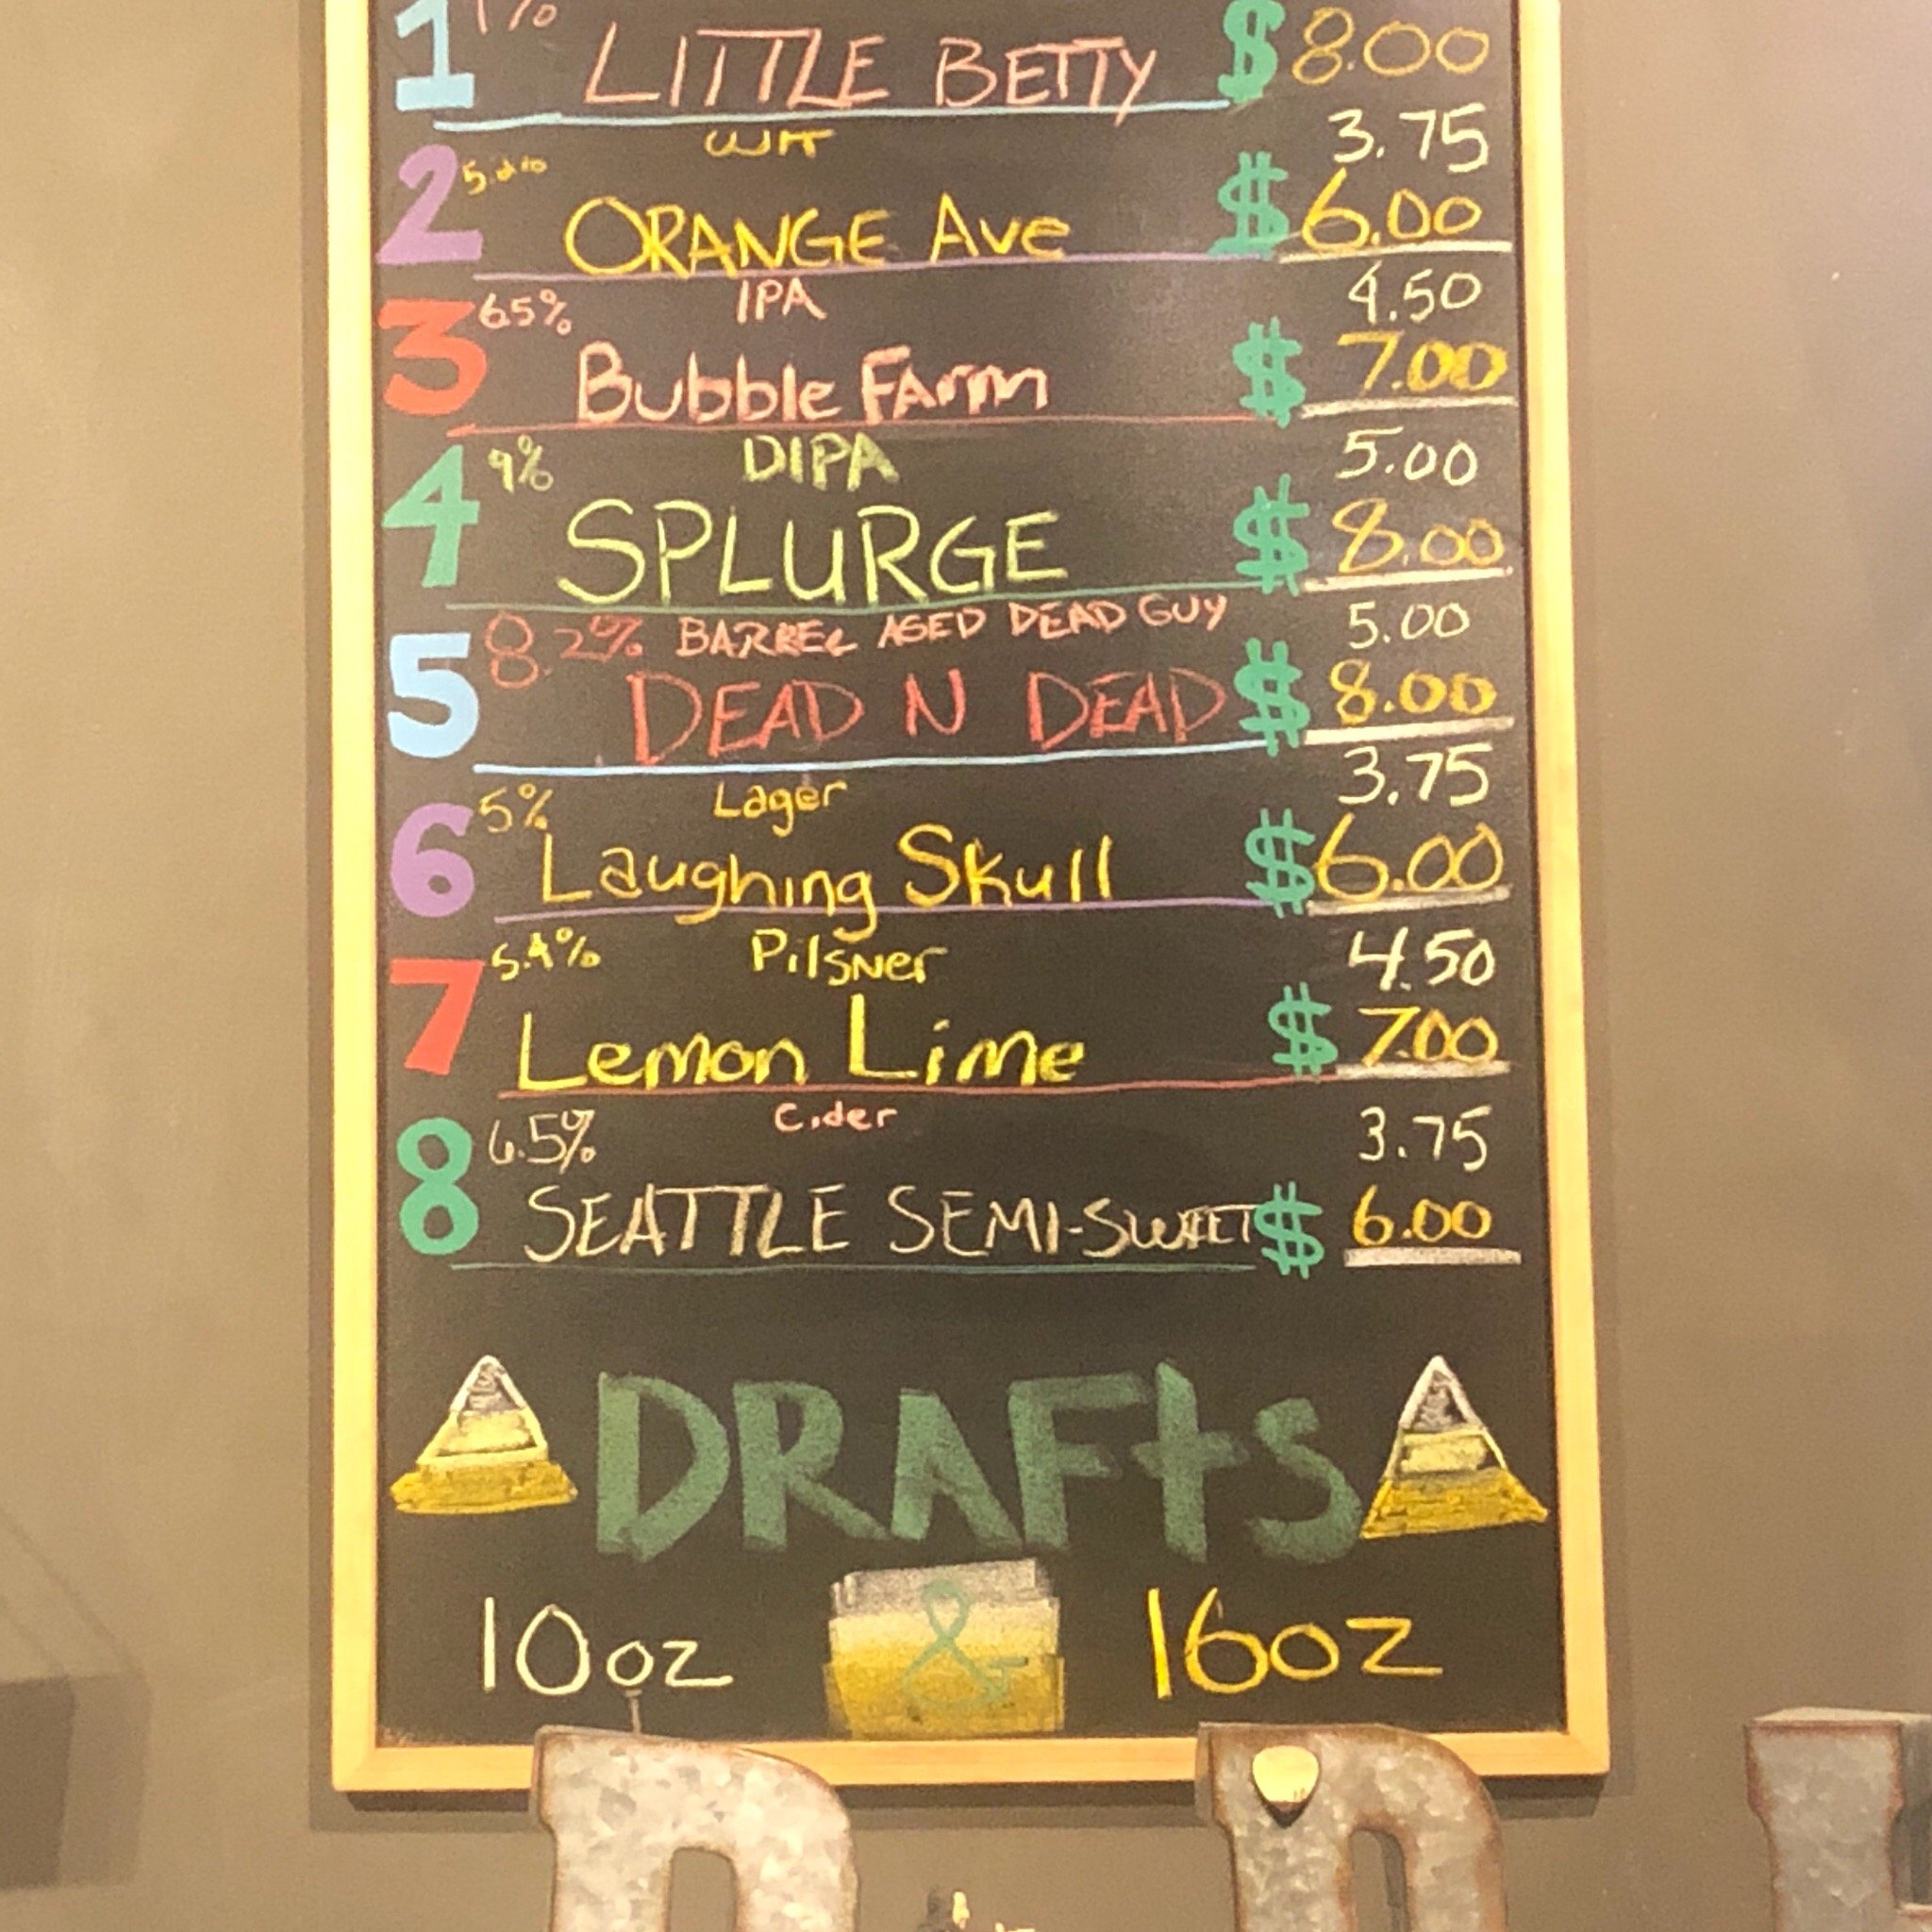 1 LITTLE BETTY $8.00
WIT 3.75
2 ORANGE Ave $6.00
6.5% IPA 4.50
3 Bubble FArm $7.00
9% DIPA 5.00
4 SPLURGE $8.00
8.2% BARREL AGED DEAD GUY 5.00
5 DEAD N DEAD $8.00
5% Lager 3.75
6 Laughing Skull $6.00
5.4% PilsNer 4.50
7 Lemon Lime $7.00
6.5% Cider 3.75
8 SEATTLE SEMI-SWEET $6.00
DRAFts
10oz & 16oz